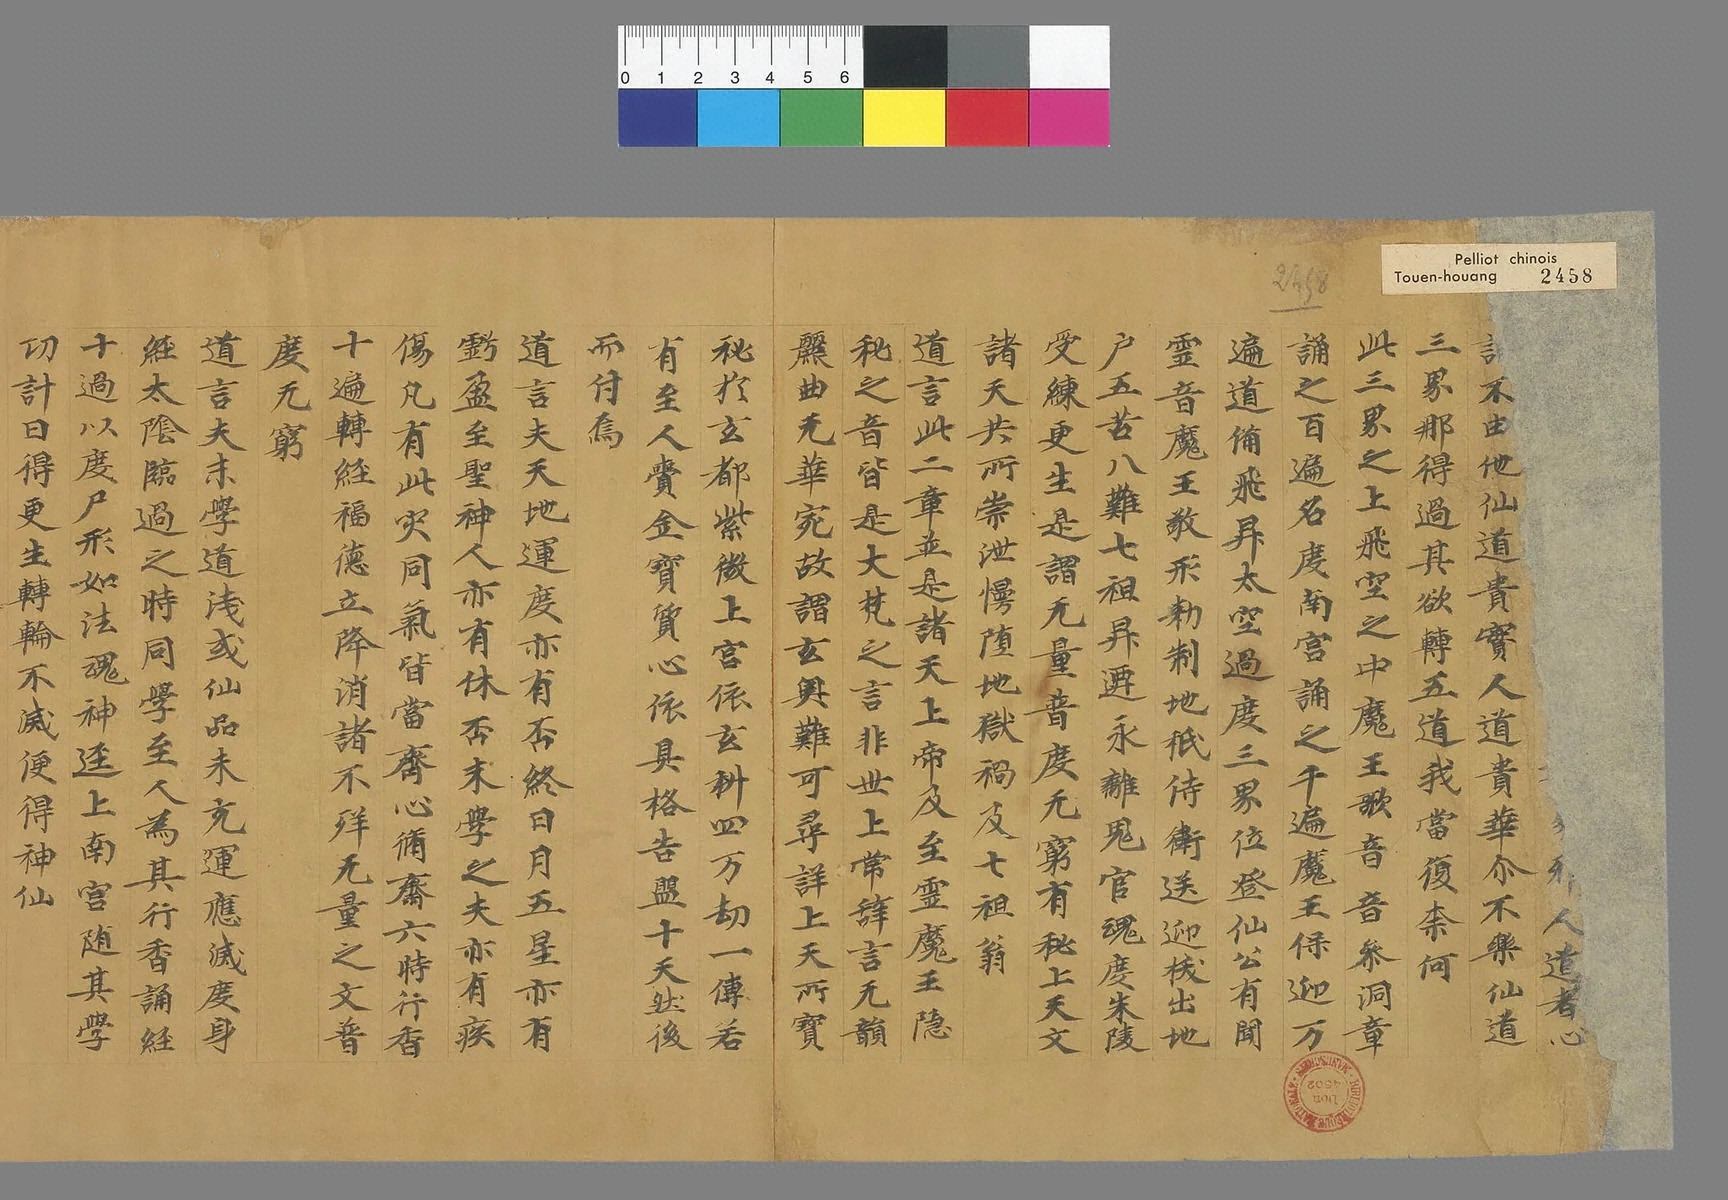 0 1 2 3 4 5 6
Pelliot chinois
Touen-houang 2458
2458
人道者心
不由他仙道貴實人道貴華尒不樂仙道
三界那得過其欲轉五道我當復柰何
此三界之上飛空之中魔王歌音音叅洞章
誦之百遍名度南宫誦之千遍魔王保迎万
遍道俻飛昇太空過度三界位登仙公有聞
霊音魔王敬形勑制地祇侍衛送迎拔出地
户五苦八難七祖昇遷永離鬼官魂度朱陵
受練更生是謂无量普度无窮有秘上天文
諸天共所崇泄慢堕地獄禍及七祖翁
道言此二章並是諸天上帝及至霊魔王隠
秘之音皆是大梵之言非世上常辝言无韻
麗曲无華宛故謂玄奥難可尋詳上天所寶
秘扵玄都紫微上宫依玄科四万劫一傳若
有至人賫金寶質心依具格告盟十天然後
而付焉
道言夫天地運度亦有否終日月五星亦有
虧盈至聖神人亦有休否末學之夫亦有疾
傷凡有此灾同氣皆當齋心脩齋六時行香
十遍轉経福德立降消諸不祥无量之文普
度无窮
道言夫末學道浅或仙品未充運應滅度身
経太陰臨過之時同學至人為其行香誦経
十過以度尸形如法魂神逕上南宫随其學
功計日得更生轉輪不滅便得神仙
BIBLIOTHEQUE NATIONALE MANUSCRITS
Don
4502